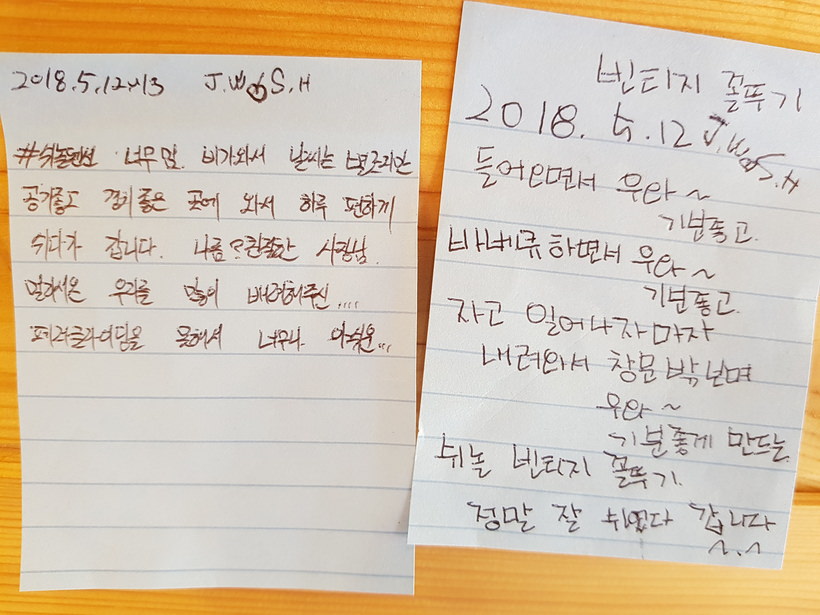 2018.5.12~13 J.W♡S.H
#쉬놀펜션 너무 멈. 비가와서 날씨는 별로지만
공기좋고 경치 좋은 곳에 와서 하루 편하게
쉬다가 갑니다. 나름? 친절한 사장님.
멀리서온 우리를 많이 배려해주신....
페러글라이딩을 못해서 너무나 아쉬운...
빈티지 꼴뚜기
2018. 5.12 J.W♡S.H
들어오면서 우와~
기분좋고.
바베큐하면서 우와~
기분좋고.
자고 일어나자마자
내려와서 창문밖보며
우와~
기분좋게 만드는
쉬놀 빈티지 꼴뚜기.
정말 잘 쉬었다 갑니다
^.^